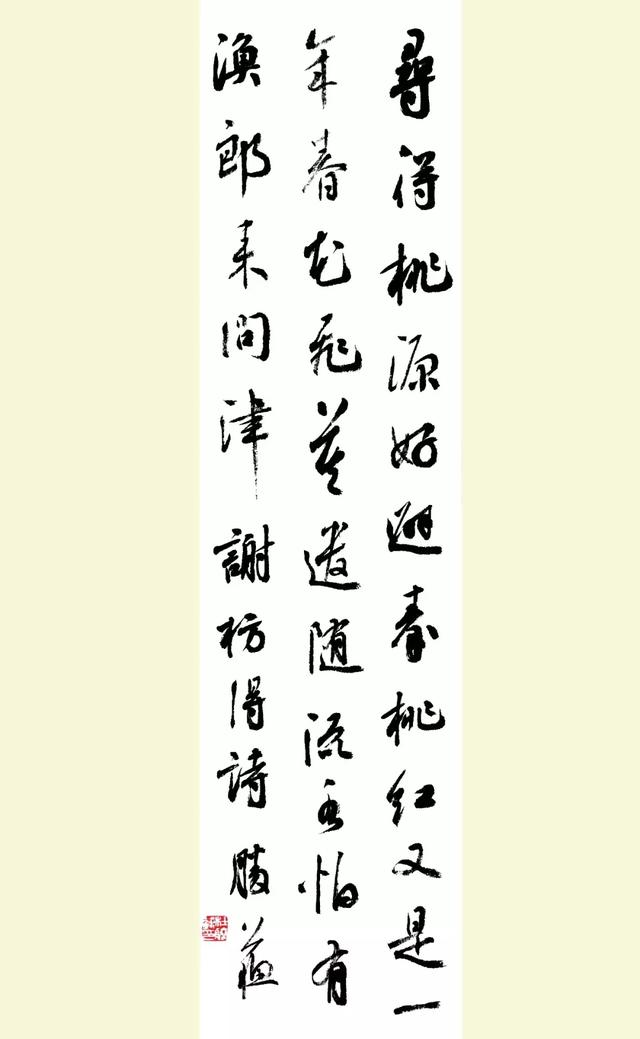 尋得桃源好避秦桃紅又是一
年春花飛莫遣随流水怕有
漁郎来問津謝枋得詩勝